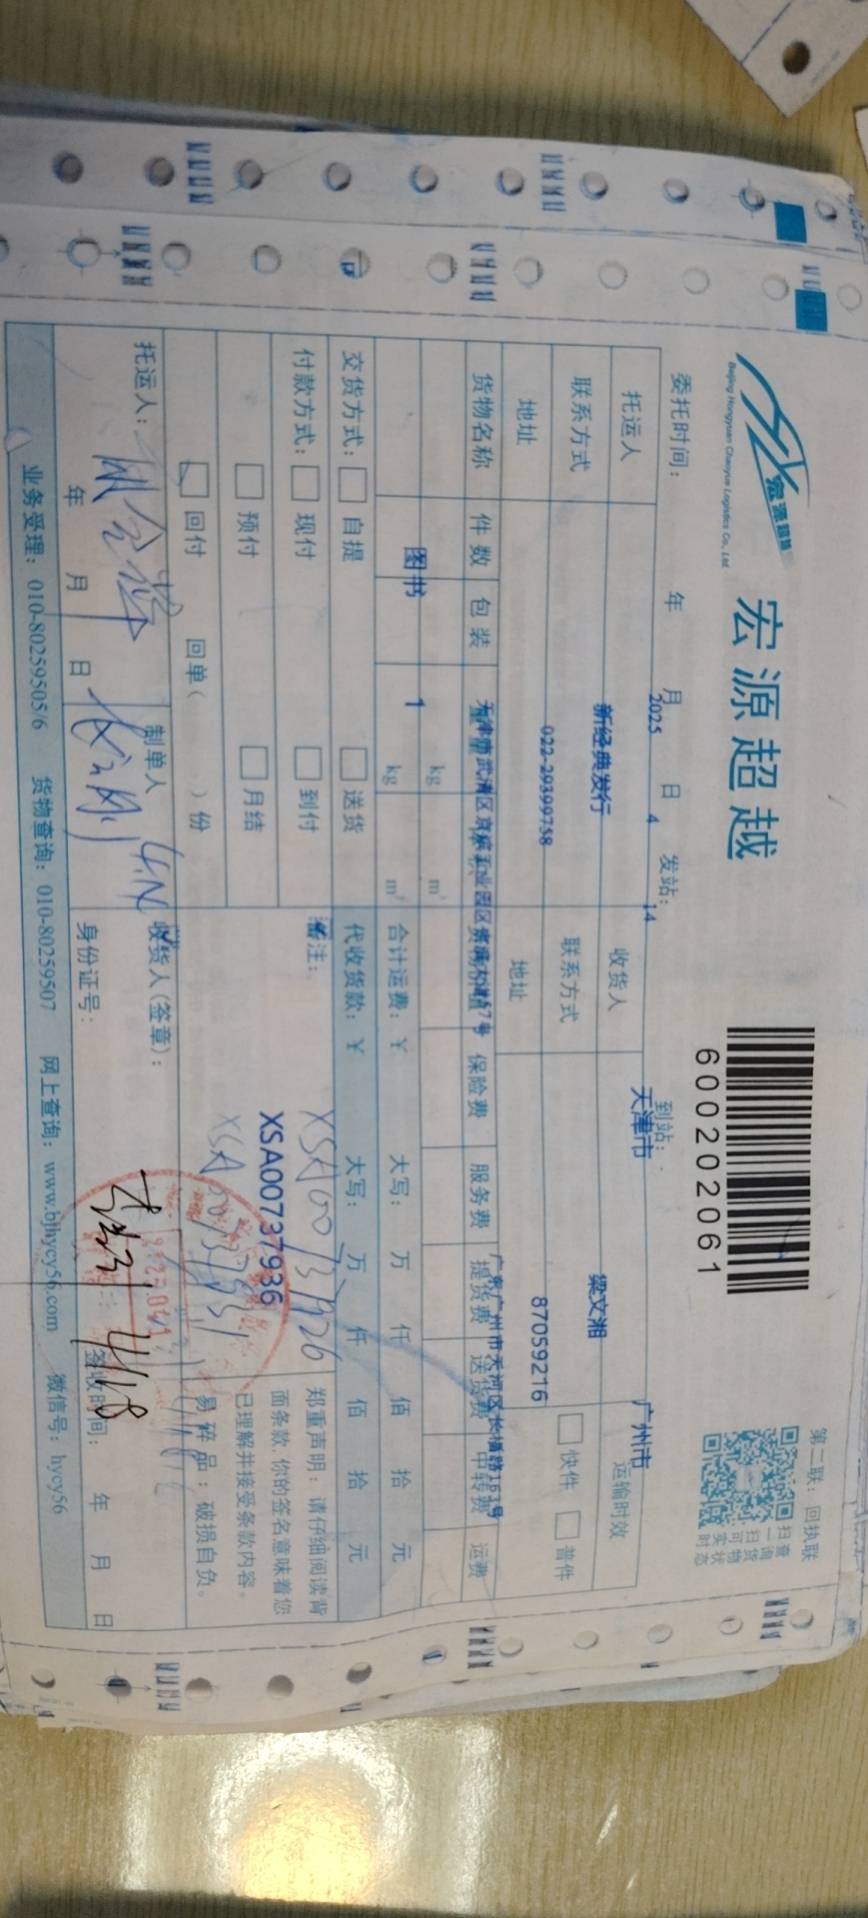 第二联：回执联
宏源超越
Beijing Hongyuan Chaoyue Logistics Co., Ltd
600202061
扫一扫 可实时
查询货物状态
委托时间： 年 月 日 发站： 到站：
2025 4 14 天津市 广州市
托运人 新经典发行 收货人 梁文湘 运输时效
联系方式 022-29399758 联系方式 87059216 快件 普件
地址 地址
广东广州市天河区长福路151号
货物名称 件数 包装 保险费 服务费 提货费 送货费 中转费 运费
图书 1 kg m³
kg m³
合计运费：￥ 大写： 万 仟 佰 拾 元
交货方式： 自提 送货 代收货款：￥ 大写： 万 仟 佰 拾 元
付款方式： 现付 到付 备注：
预付 月结
回付 回单（ ）份
XSA00737926
XSA00737936
郑重声明：请仔细阅读背
面条款，你的签名意味着您
已理解并接受条款内容。
易碎品：破损自负。
托运人： 制单人 收货人(签章)：
年 月 日 身份证号： 签收时间： 年 月 日
4/18
业务受理：010-80259505/6 货物查询：010-80259507 网上查询：www.bjhycy56.com 微信号：hycy56